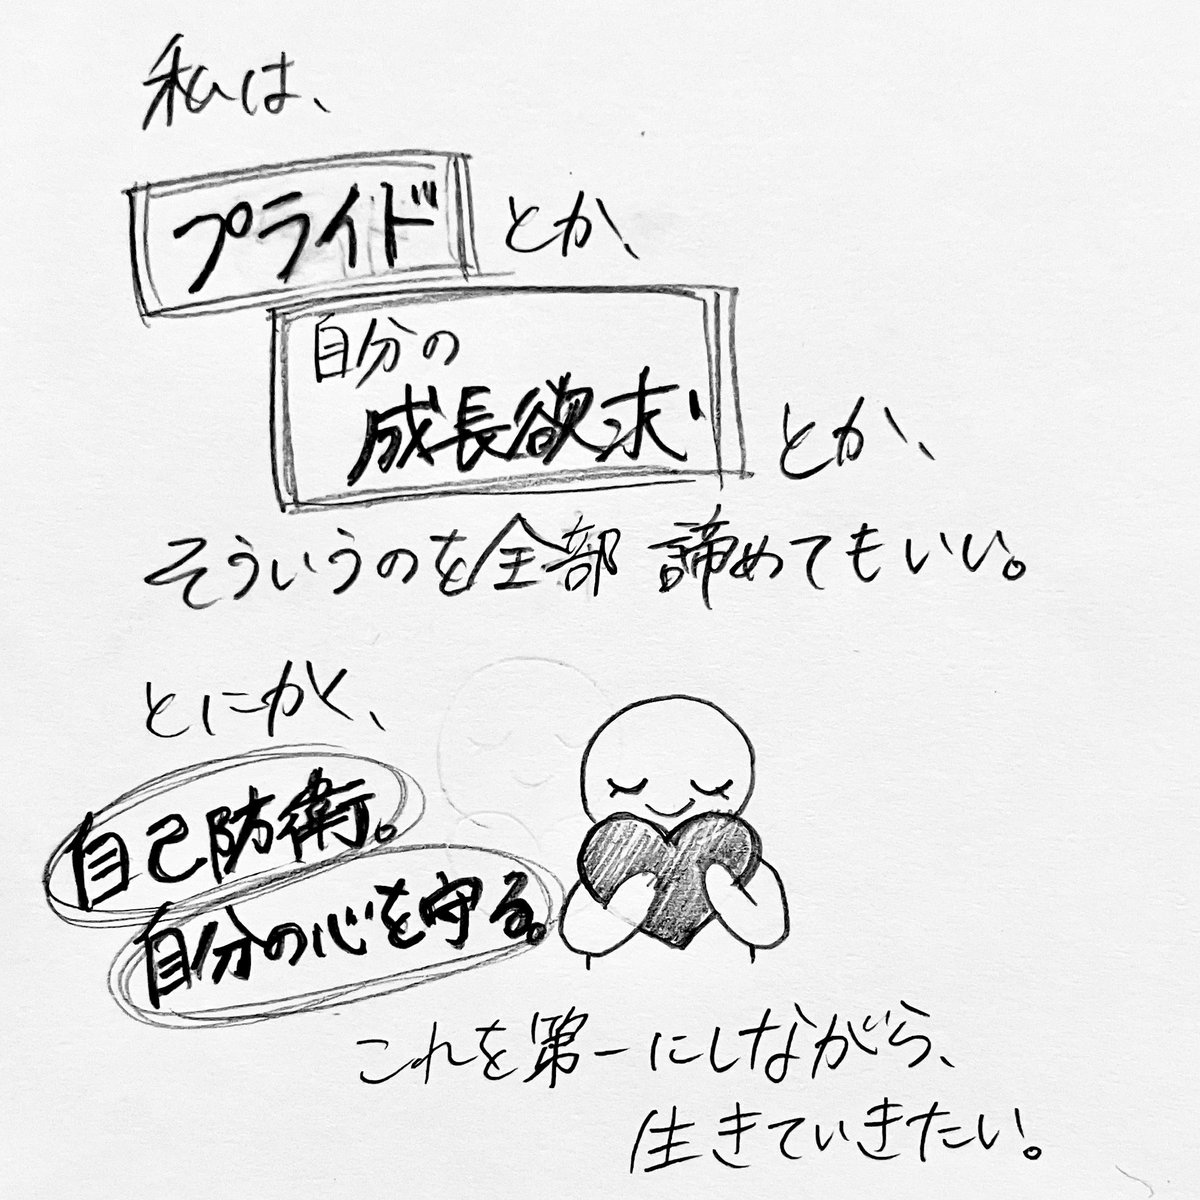 私は、
プライドとか、
自分の
成長欲求とか、
そういうのを全部 諦めてもいい。
とにかく、
自己防衛。
自分の心を守る。
これを第一にしながら、
生きていきたい。